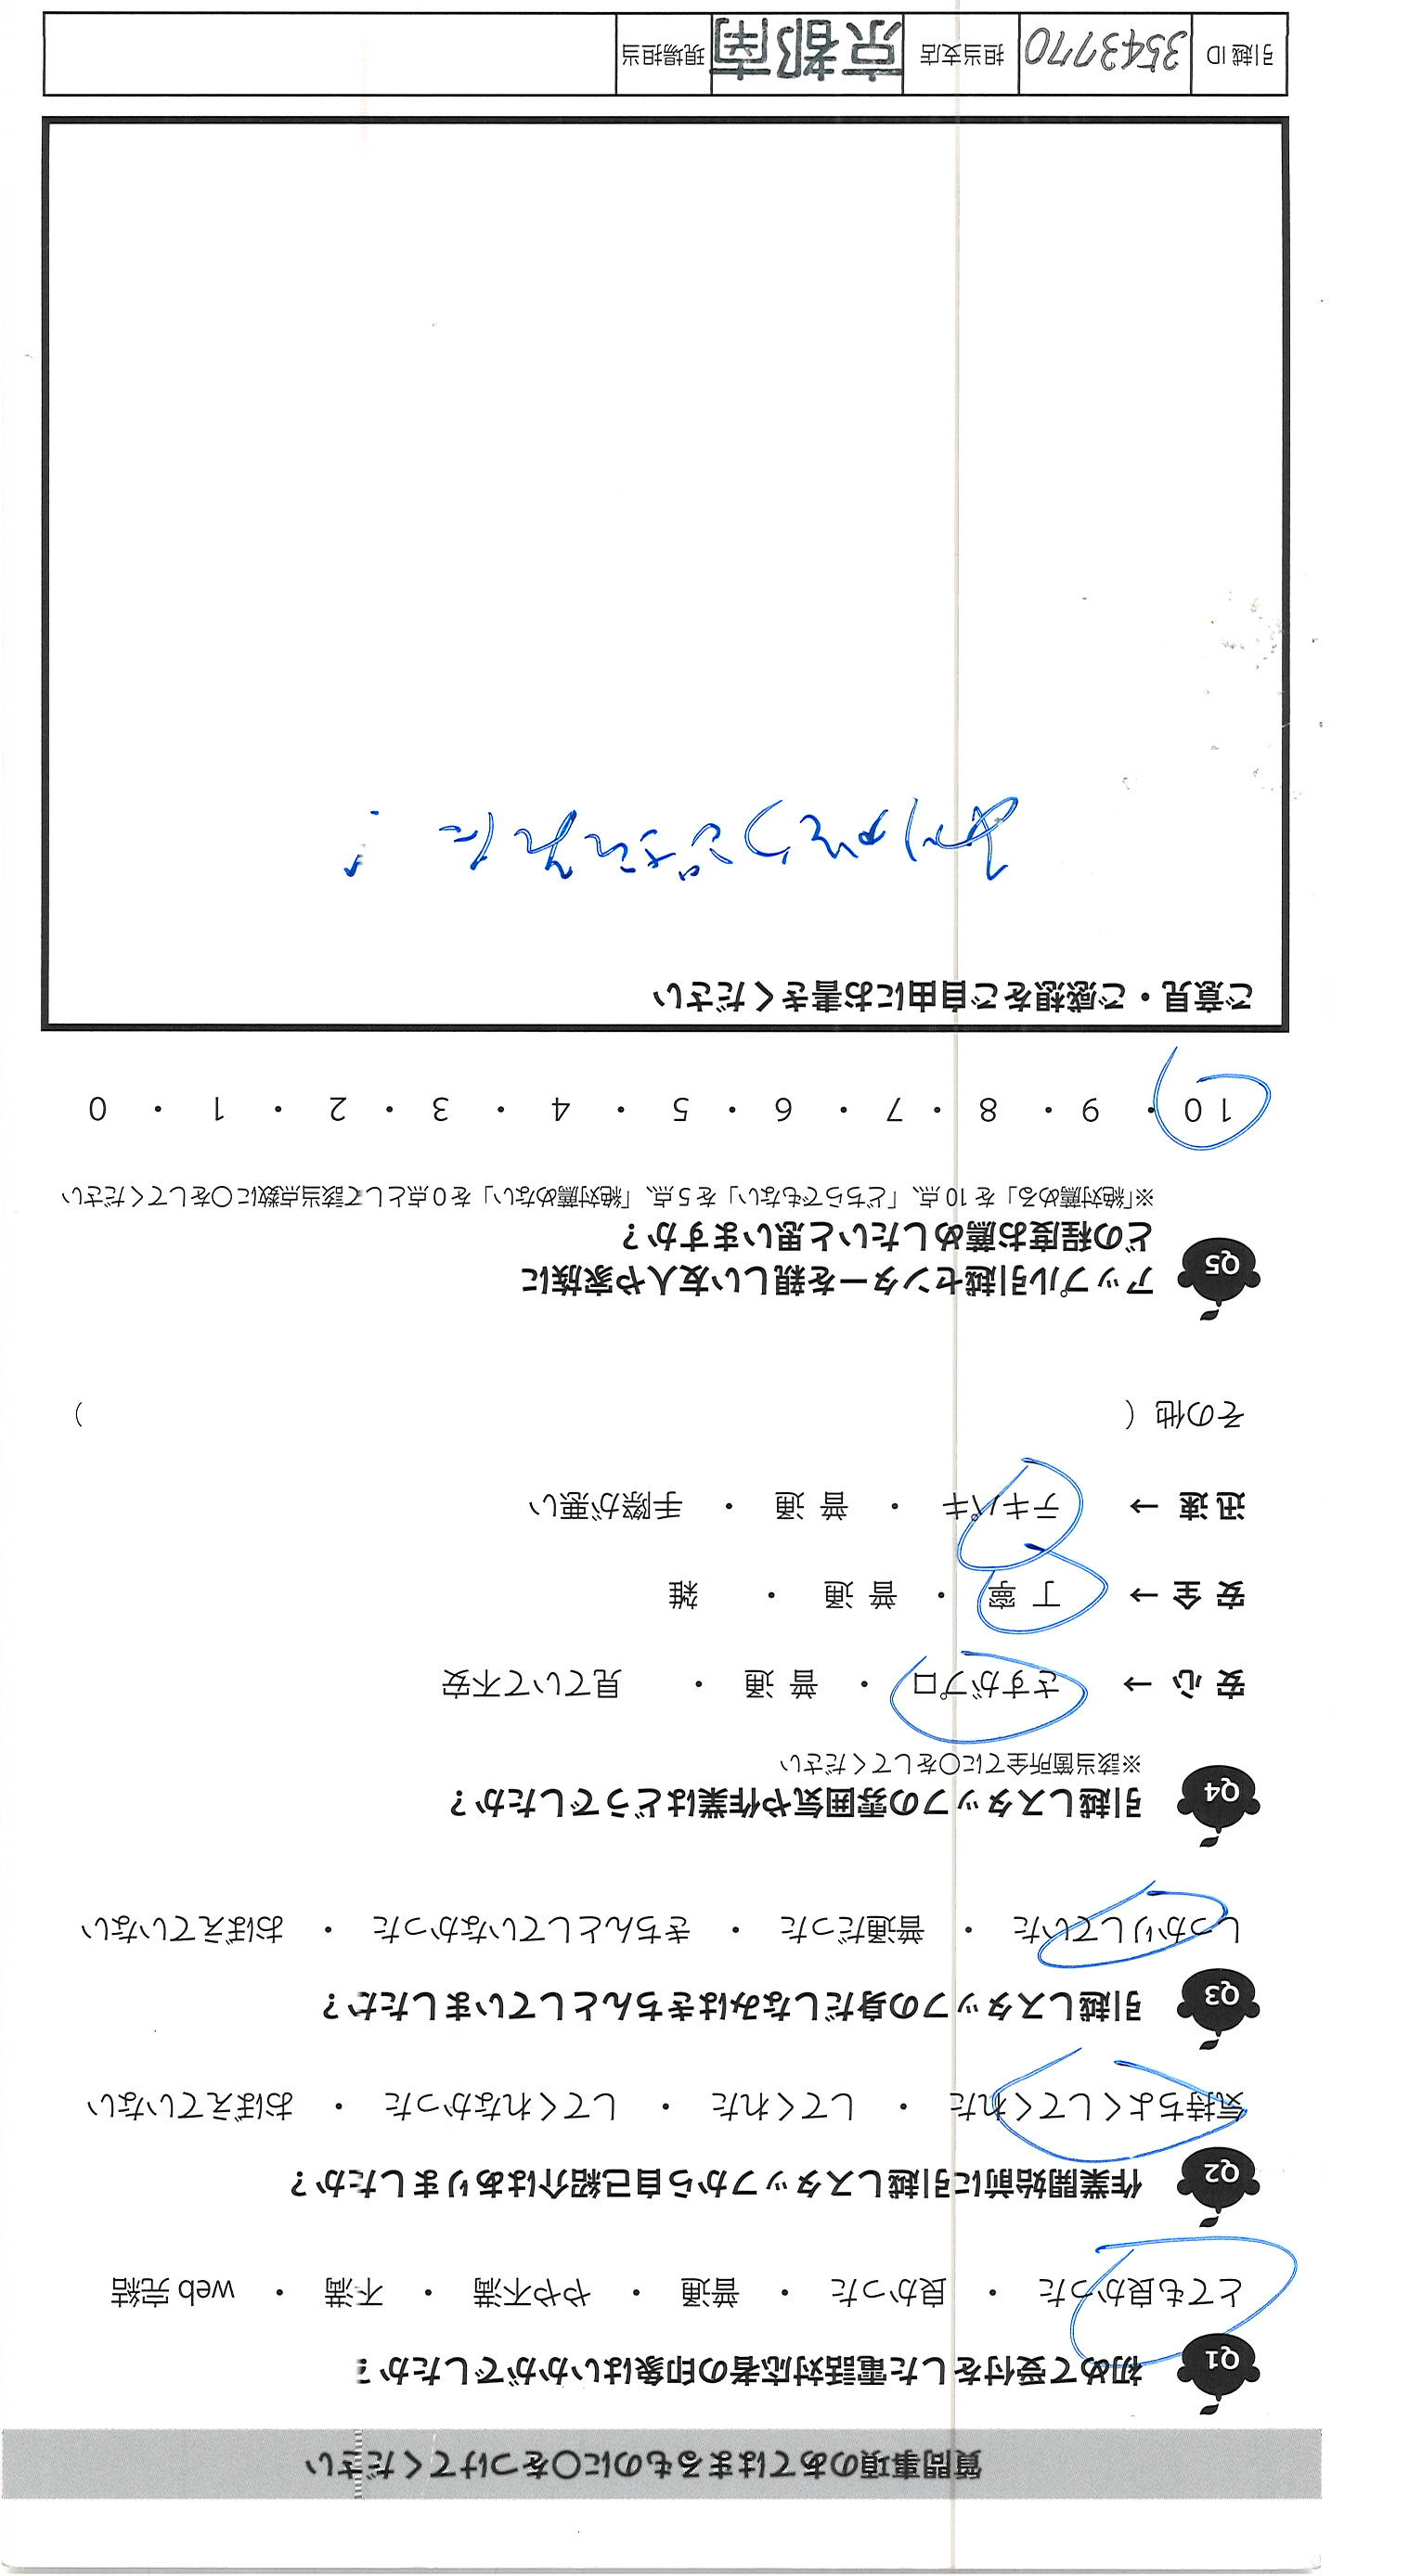 質問事項のあてはまるものに〇をつけてください
Q1 初めて受付をした電話対応者の印象はいかがでしたか？
とても良かった ・ 良かった ・ 普通 ・ やや不満 ・ 不満 ・ web 完結
Q2 作業開始前に引越しスタッフから自己紹介はありましたか？
気持ちよくしてくれた ・ してくれた ・ してくれなかった ・ おぼえていない
Q3 引越しスタッフの身だしなみはきちんとしていましたか？
しっかりしていた ・ 普通だった ・ きちんとしていなかった ・ おぼえていない
Q4 引越しスタッフの雰囲気や作業はどうでしたか？
※該当箇所全てに〇をしてください
安 心 → さすがプロ ・ 普 通 ・ 見ていて不安
安 全 → 丁 寧 ・ 普 通 ・ 雑
迅 速 → テキパキ ・ 普 通 ・ 手際が悪い
その他（ ）
Q5 アップル引越センターを親しい友人や家族に
どの程度お薦めしたいと思いますか？
※「絶対薦める」を 10 点、「どちらでもない」を 5 点、「絶対薦めない」を 0 点として該当点数に〇をしてください
10 ・ 9 ・ 8 ・ 7 ・ 6 ・ 5 ・ 4 ・ 3 ・ 2 ・ 1 ・ 0
ご意見・ご感想をご自由にお書きください
引越 ID 3543770 担当支店 京都南 現場担当